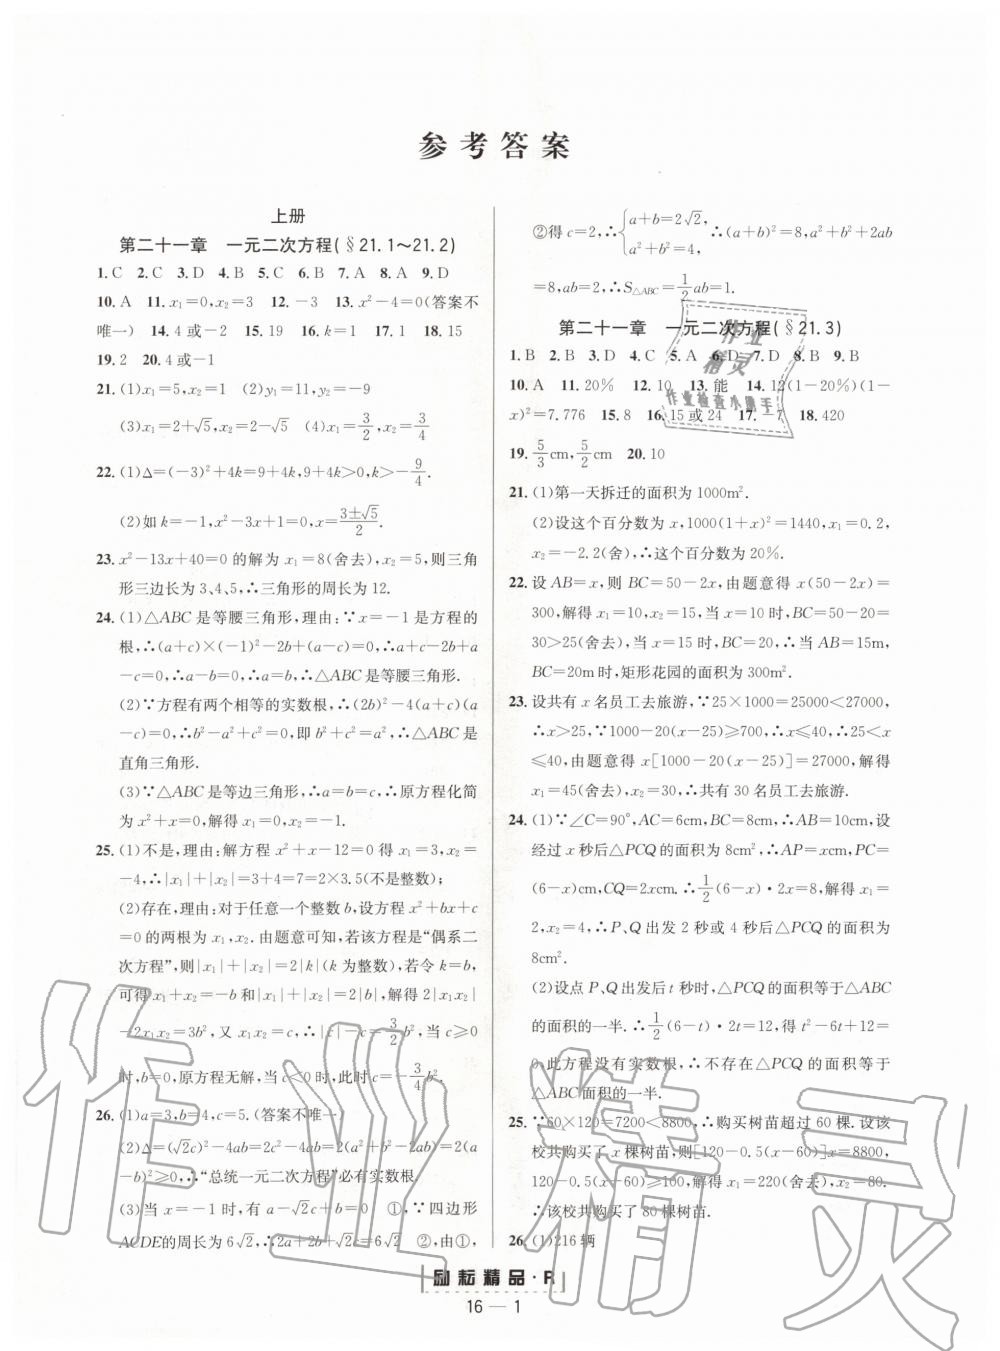 参考答案
上册
第二十一章 一元二次方程(§21.1～21.2)
1.C 2.C 3.D 4.B 5.C 6.B 7.A 8.A 9.D
10.A 11.x₁=0,x₂=3 12.-3 13.x²-4=0(答案不
唯一) 14.4或-2 15.19 16.k=1 17.1 18.15
19.2 20.4或-1
21.(1)x₁=5,x₂=1 (2)y₁=11,y₂=-9
(3)x₁=2+√5,x₂=2-√5 (4)x₁=3/2,x₂=3/4
22.(1)Δ=(-3)²+4k=9+4k,9+4k>0,k>-9/4.
(2)如k=-1,x²-3x+1=0,x=(3±√5)/2.
23.x²-13x+40=0的解为x₁=8(舍去),x₂=5,则三角
形三边长为3、4、5,∴三角形的周长为12.
24.(1)△ABC是等腰三角形,理由:∵x=-1是方程的
根,∴(a+c)×(-1)²-2b+(a-c)=0,∴a+c-2b+a
-c=0,∴a-b=0,∴a=b,∴△ABC是等腰三角形.
(2)∵方程有两个相等的实数根,∴(2b)²-4(a+c)(a
-c)=0,∴b²-a²+c²=0,即b²+c²=a²,∴△ABC是
直角三角形.
(3)∵△ABC是等边三角形,∴a=b=c,∴原方程化简
为x²+x=0,解得x₁=0,x₂=-1.
25.(1)不是,理由:解方程x²+x-12=0得x₁=3,x₂=
-4,∴|x₁|+|x₂|=3+4=7=2×3.5(不是整数);
(2)存在,理由:对于任意一个整数b,设方程x²+bx+c
=0的两根为x₁,x₂.由题意可知,若该方程是“偶系二
次方程”,则|x₁|+|x₂|=2|k|(k为整数),若令k=b,
可得x₁+x₂=-b和|x₁|+|x₂|=2|b|,解得2|x₁x₂|
-2x₁x₂=3b²,又x₁x₂=c,∴|c|-c=3/2b²,当c≥0
时,b=0,原方程无解,当c<0时,此时c=-3/4b².
26.(1)a=3,b=4,c=5.(答案不唯一)
(2)Δ=(√2c)²-4ab=2c²-4ab=2(a²+b²-2ab)=2(a
-b)²≥0,∴“总统一元二次方程”必有实数根.
(3)当x=-1时,有a-√2c+b=0 ①,∵四边形
ACDE的周长为6√2,∴2a+2b+√2c=6√2 ②,由①,
②得c=2,∴{a+b=2√2, a²+b²=4, ∴(a+b)²=8,a²+b²+2ab
=8,ab=2,∴S△ABC=1/2ab=1.
第二十一章 一元二次方程(§21.3)
1.B 2.B 3.D 4.C 5.A 6.D 7.D 8.B 9.B
10.A 11.20% 12.10 13.能 14.12(1-20%)(1-
x)²=7.776 15.8 16.15或24 17.-7 18.420
19.5/3cm,5/2cm 20.10
21.(1)第一天拆迁的面积为1000m².
(2)设这个百分数为x,1000(1+x)²=1440,x₁=0.2,
x₂=-2.2(舍),∴这个百分数为20%.
22.设AB=x,则BC=50-2x,由题意得x(50-2x)=
300,解得x₁=10,x₂=15,当x=10时,BC=50-20=
30>25(舍去),当x=15时,BC=20,∴当AB=15m,
BC=20m时,矩形花园的面积为300m².
23.设共有x名员工去旅游,∵25×1000=25000<27000,
∴x>25,∵1000-20(x-25)≥700,∴x≤40,∴25<x
≤40,由题意得x[1000-20(x-25)]=27000,解得
x₁=45(舍去),x₂=30,∴共有30名员工去旅游.
24.(1)∵∠C=90°,AC=6cm,BC=8cm,∴AB=10cm,设
经过x秒后△PCQ的面积为8cm²,∴AP=xcm,PC=
(6-x)cm,CQ=2xcm.∴1/2(6-x)·2x=8,解得x₁=
2,x₂=4,∴P、Q出发2秒或4秒后△PCQ的面积为
8cm².
(2)设点P、Q出发后t秒时,△PCQ的面积等于△ABC
的面积的一半.∴1/2(6-t)·2t=12,得t²-6t+12=
0,此方程没有实数根,∴不存在△PCQ的面积等于
△ABC面积的一半.
25.∵60×120=7200<8800,∴购买树苗超过60棵.设该
校共购买了x棵树苗,则[120-0.5(x-60)]x=8800,
120-0.5(x-60)≥100,解得x₁=220(舍去),x₂=80.
∴该校共购买了80棵树苗.
26.(1)216辆
励耘精品·R
16—1
作业精灵
作业
精灵
作业检查小助手